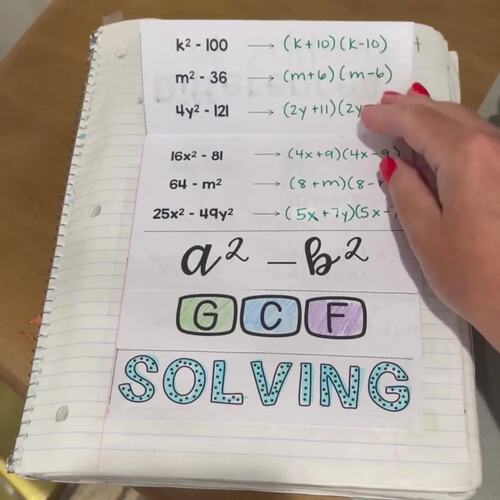 k² - 100 → (k+10)(k-10)
m² - 36 → (m+6)(m-6)
4y² - 121 → (2y+11)(2y
16x² - 81 → (4x+9)(4x-9)
64 - m² → (8+m)(8-
25x² - 49y² → (5x+7y)(5x-
a² - b²
GCF
SOLVING